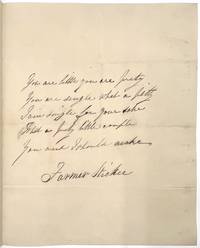 You are little you are pretty
You are single what a pity
I am single for your sake
What a pretty little couple
You and I should make
Farmer